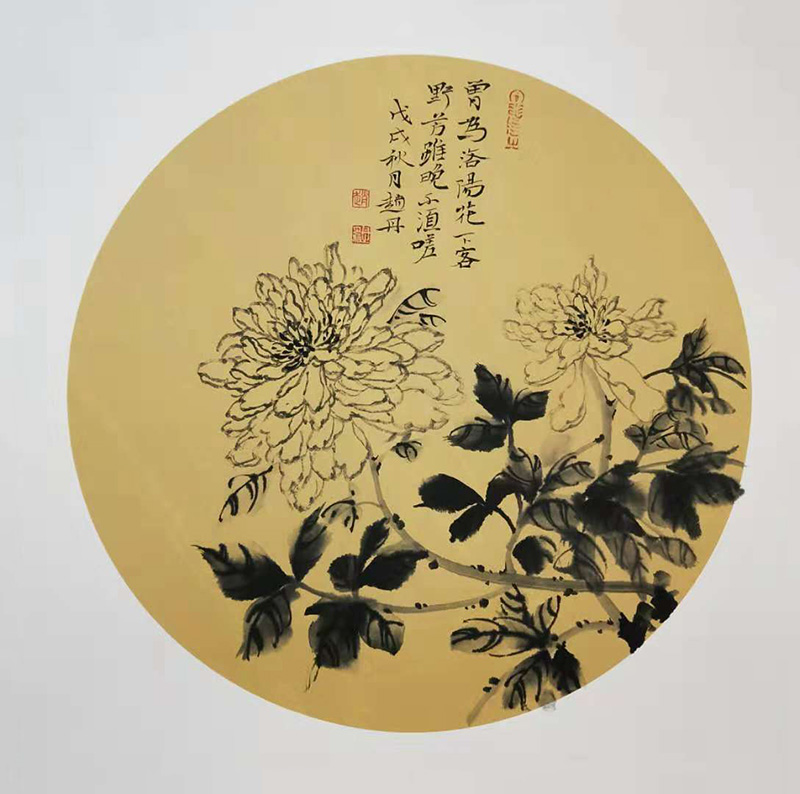 曾為洛陽花下客
野芳雖晚不須嗟
戊戌秋月趙丹